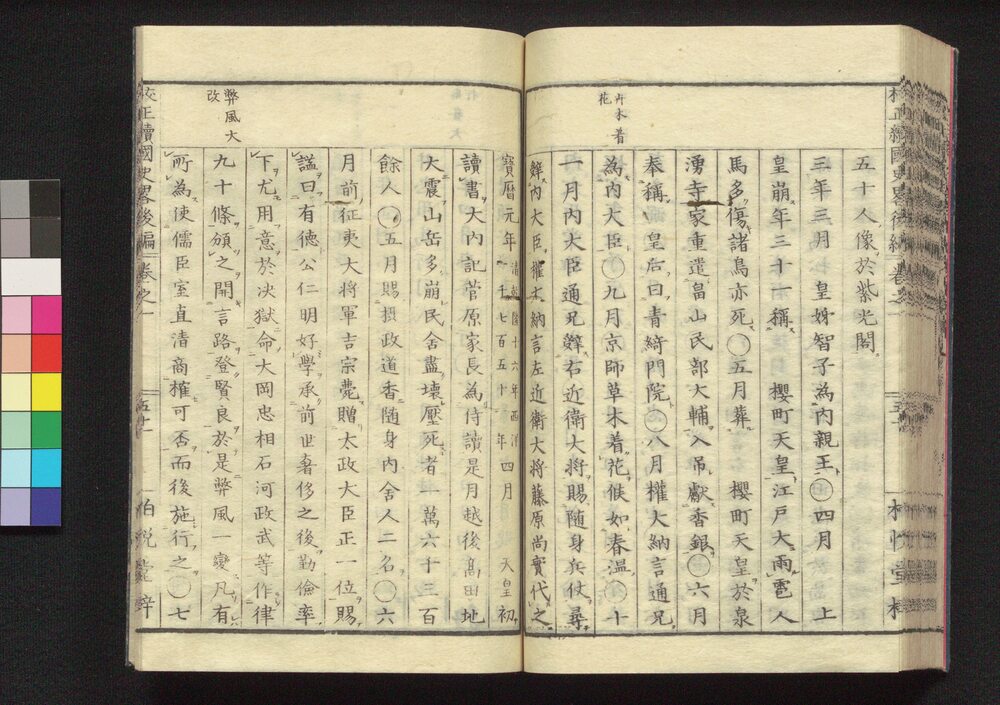 五十人像於紫光閣
三年三月皇姊智子為內親王○四月 上
皇崩年三十一稱 櫻町天皇江戶大雨雹人
馬多傷諸鳥亦死○五月葬 櫻町天皇於泉
湧寺家重遣畠山民部大輔入吊獻香銀○六月
奉稱 皇后曰青綺門院○八月權大納言通兄
為內大臣○九月京師草木着花候如春溫○十
一月內大臣通兄辭右近衛大將賜隨身兵仗尋
辭內大臣權大納言左近衛大將藤原尚實代之
草木着
花
寶曆元年 四月 天皇初
讀書大內記菅原家長為侍讀是月越後高田地
大震山岳多崩民舍盡壞壓死者一萬六十三百
餘人○五月賜攝政道香隨身內舍人二名○六
月前征夷大將軍吉宗薨贈太政大臣正一位賜
謚曰有德公仁明好學承前世奢侈之後勤儉率
下尤用意於決獄命大岡忠相石河政武等作律
九十條頒之開言路登賢良於是弊風一變凡有
所為使儒臣室直清商榷可否而後施行之○七
弊風大
改
校正續國史畧後編 卷之一 五十一